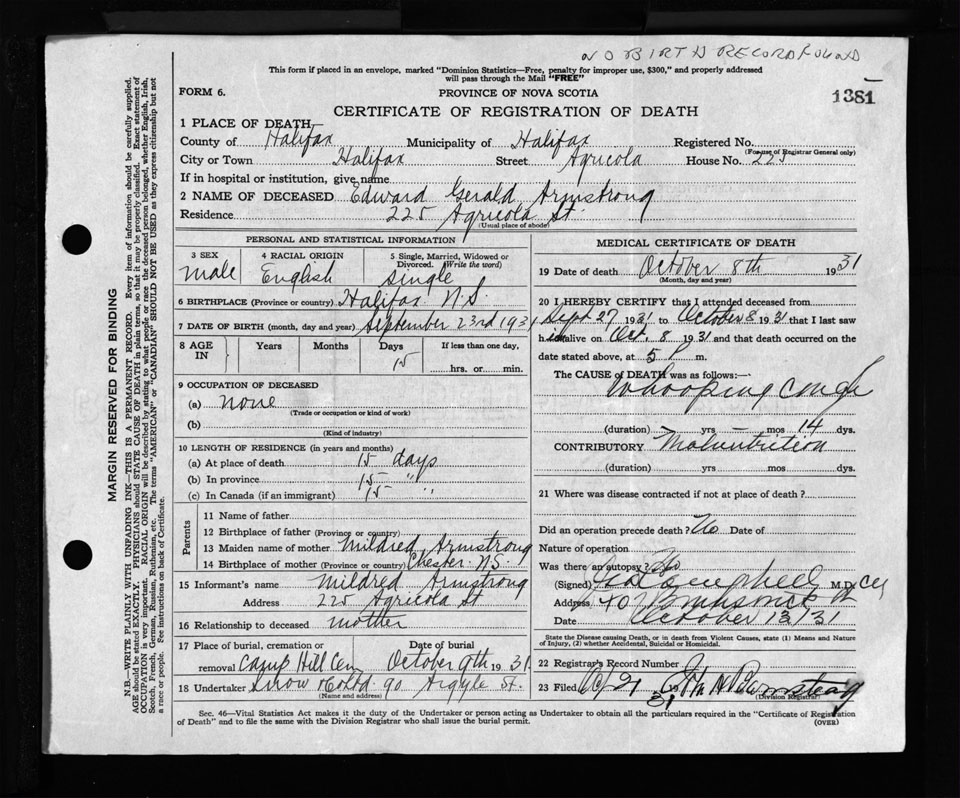 NO BIRTH RECORD FOUND
This form if placed in an envelope, marked "Dominion Statistics—Free, penalty for improper use, $300," and properly addressed
will pass through the Mail "FREE"
FORM 6.
PROVINCE OF NOVA SCOTIA
1381
CERTIFICATE OF REGISTRATION OF DEATH
1 PLACE OF DEATH—
County of Halifax Municipality of Halifax Registered No.
(For use of Registrar General only)
City or Town Halifax Street Agricola House No. 225
If in hospital or institution, give name
2 NAME OF DECEASED Edward Gerald Armstrong
Residence 225 Agricola St.
(Usual place of abode)
PERSONAL AND STATISTICAL INFORMATION
3 SEX 4 RACIAL ORIGIN 5 Single, Married, Widowed or
Divorced. (Write the word)
Male English Single
6 BIRTHPLACE (Province or country) Halifax N.S.
7 DATE OF BIRTH (month, day and year) September 23rd 1931
8 AGE IN Years Months Days If less than one day,
15 hrs. or min.
9 OCCUPATION OF DECEASED
(a) none
(Trade or occupation or kind of work)
(b)
(Kind of industry)
10 LENGTH OF RESIDENCE (in years and months)
(a) At place of death 15 days
(b) In province 15 "
(c) In Canada (if an immigrant) 15 "
Parents
11 Name of father
12 Birthplace of father (Province or country)
13 Maiden name of mother Mildred Armstrong
14 Birthplace of mother (Province or country) Chester N.S.
15 Informant's name Mildred Armstrong
Address 225 Agricola St
16 Relationship to deceased mother
17 Place of burial, cremation or Date of burial
removal Camp Hill Cem October 9th 1931
18 Undertaker Snow & Co Ltd. 90 Argyle St.
(Name and address)
MEDICAL CERTIFICATE OF DEATH
19 Date of death October 8th 1931
(Month, day and year)
20 I HEREBY CERTIFY that I attended deceased from
Sept 27 1931 to October 8 1931 that I last saw
him alive on Oct. 8 1931 and that death occurred on the
date stated above, at 5 P m.
The CAUSE of DEATH was as follows:—
Whooping cough
(duration) yrs mos 14 dys.
CONTRIBUTORY Malnutrition
(duration) yrs mos dys.
21 Where was disease contracted if not at place of death?
Did an operation precede death? No Date of
Nature of operation
Was there an autopsy? No
(Signed) M.D.
Address 407 Brunswick St
Date October 13/31
State the Disease causing Death, or in death from Violent Causes, state (1) Means and Nature
of Injury, (2) whether Accidental, Suicidal or Homicidal.
22 Registrar's Record Number
23 Filed Oct 21 1931
(Division Registrar)
Sec. 46—Vital Statistics Act makes it the duty of the Undertaker or person acting as Undertaker to obtain all the particulars required in the "Certificate of Registration
of Death" and to file the same with the Division Registrar who shall issue the burial permit.
(OVER)
MARGIN RESERVED FOR BINDING
N.B.—WRITE PLAINLY WITH UNFADING INK—THIS IS A PERMANENT RECORD. Every item of information should be carefully supplied.
AGE should be stated EXACTLY. PHYSICIANS should STATE CAUSE OF DEATH in plain terms, so that it may be properly classified. Exact statement of
OCCUPATION is very important. RACIAL ORIGIN will be described by stating to what people or race the deceased person belonged, whether English, Irish,
Scotch, French, German, Russian, Ruthenian, etc. The terms "AMERICAN" or "CANADIAN" SHOULD NOT BE USED as they express citizenship but not
a race or people. See instructions on back of Certificate.